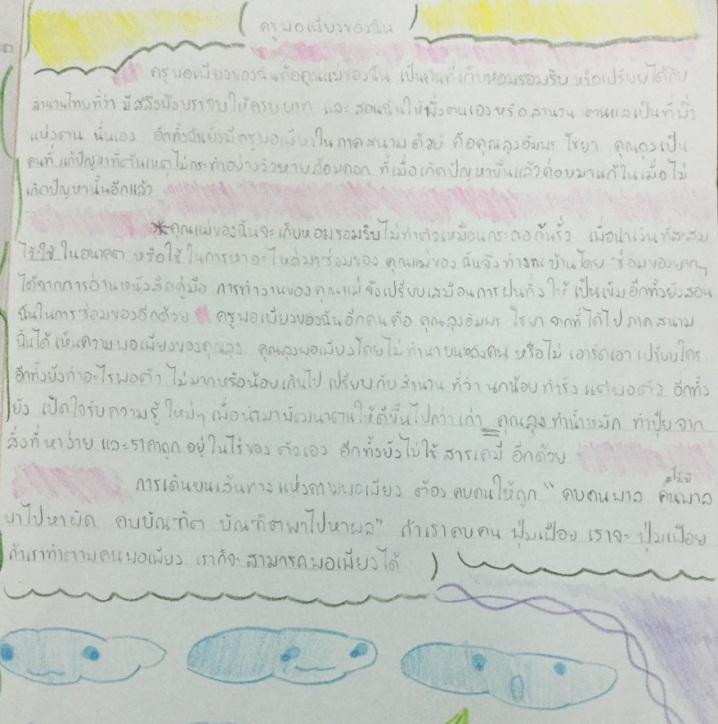 ( ครูพอเพียงของฉัน )
ครูพอเพียงของฉันคือคุณแม่ของฉัน เป็นคนที่เก็บหอมรอมริบ หรือเปรียบได้กับ
สำนวนไทยที่ว่า มีสลึงพึงบรรจบให้ครบบาท และสอนฉันให้พึ่งตนเองหรือสำนวน ตนแลเป็นที่พึ่ง
แห่งตน นั่นเอง อีกทั้งฉันยังมีครูพอเพียงในภาคสนามด้วย คือคุณลุงอัมพร ไชยา คุณลุงเป็น
คนที่แก้ปัญหาที่ต้นเหตุไม่กระทำอย่างวัวหายล้อมคอก ที่เมื่อเกิดปัญหาขึ้นแล้วค่อยมาแก้ในเมื่อไม่
เกิดปัญหานั้นอีกแล้ว
คุณแม่ของฉันจะเก็บหอมรอมริบไม่ทำตัวเหมือนกระเชอก้นรั่ว เพื่อนำเงินที่สะสม
ไว้ใช้ในอนาคต หรือใช้ในการหาอะไหล่มาซ่อมของ คุณแม่ของฉันจึงทำงานบ้านโดย ซ่อมของยากๆ
ได้จากการอ่านหนังสือคู่มือ การทำงานของคุณแม่จึงเปรียบเสมือนการฝนทั่งให้เป็นเข็มอีกทั้งยังสอน
ฉันในการซ่อมของอีกด้วย ครูพอเพียงของฉันอีกคนคือ คุณลุงอัมพร ไชยา จากที่ได้ไปภาคสนาม
ฉันได้เห็นความพอเพียงของคุณลุง คุณลุงพอเพียงโดยไม่ทำนาบนหลังคน หรือไม่เอารัดเอาเปรียบใคร
อีกทั้งยังทำอะไรพอตัว ไม่มากหรือน้อยเกินไป เปรียบกับสำนวน ที่ว่า นกน้อยทำรังแต่พอตัว อีกทั้ง
ยัง เปิดใจรับความรู้ใหม่ๆ เพื่อนำมาพัฒนาตนให้ดีขึ้นไปกว่าเก่า คุณลุง ทำน้ำหมัก ทำปุ๋ยจาก
สิ่งที่หาง่าย และราคาถูก อยู่ในไร่ของ ตัวเอง อีกทั้งยังไม่ใช้ สารเคมี อีกด้วย
การเดินบนเส้นทางแห่งความพอเพียง ต้องคบคนให้ถูก “ คบคนพาล คนพาล
พาไปหาผิด คบบัณฑิต บัณฑิตพาไปหาผล” ถ้าเราคบคน ฟุ่มเฟือย เราจะ ฟุ่มเฟือย
ถ้าเราทำตามคนพอเพียง เราก็จะสามารถพอเพียงได้